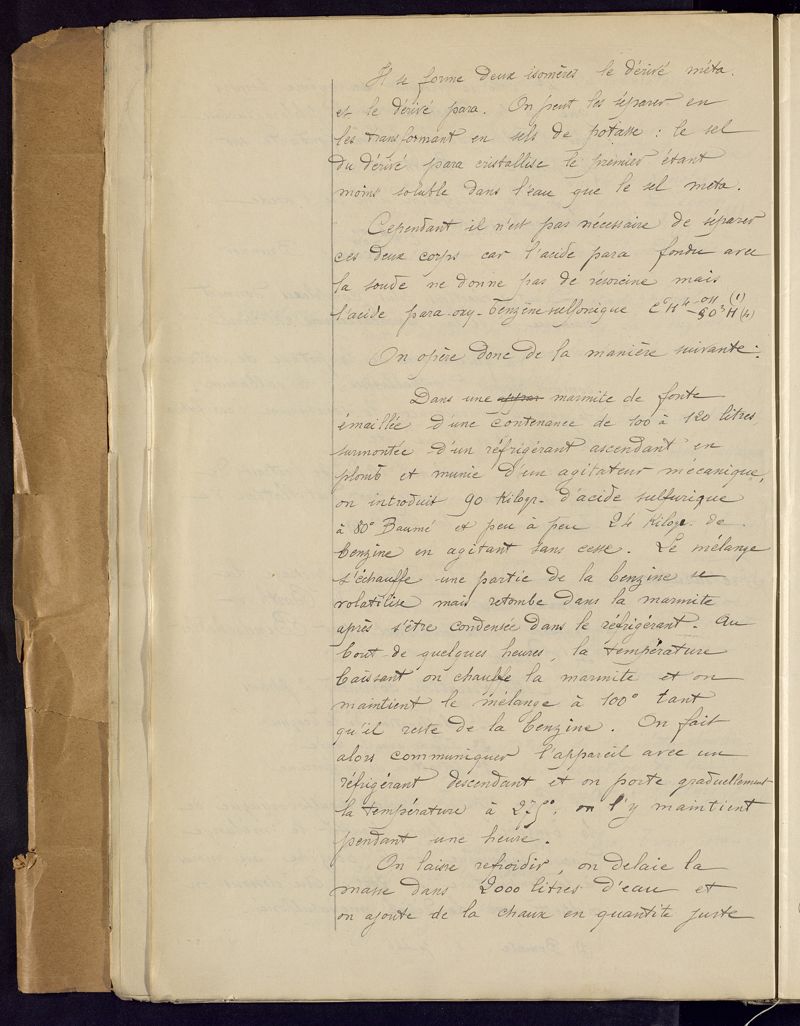 Il se forme deux isomères le dérivé méta.
et le dérivé para. On peut les séparer en
les transformant en sels de potasse : le sel
du dérivé para cristallise le premier étant
moins soluble dans l'eau que le sel meta.
Cependant il n'est pas nécessaire de séparer
ces deux corps car l'acide para fondu avec
la soude ne donne pas de résorcine mais
l'acide para-oxy-benzène sulfonique C⁶H⁴-OH (1) -SO³H (4)
On opère donc de la manière suivante :
Dans une marmite de fonte
émaillée d'une contenance de 100 à 120 litres,
surmontée d'un réfrigérant ascendant en
plomb et munie d'un agitateur mécanique,
on introduit 90 Kilogr. d'acide sulfurique
à 80° Baumé et peu à peu 24 Kilogr. de
benzine en agitant sans cesse. Le mélange
s'échauffe une partie de la benzine se
volatilise mais retombe dans la marmite
après s'être condensée dans le réfrigérant. Au
bout de quelques heures, la température
baissant on chauffe la marmite et on
maintient le mélange à 100° tant
qu'il reste de la benzine. On fait
alors communiquer l'appareil avec un
réfrigérant descendant et on porte graduellement
la température à 275°. on l'y maintient
pendant une heure.
On laisse refroidir, on delaie la
masse dans 2000 litres d'eau et
on ajoute de la chaux en quantité juste